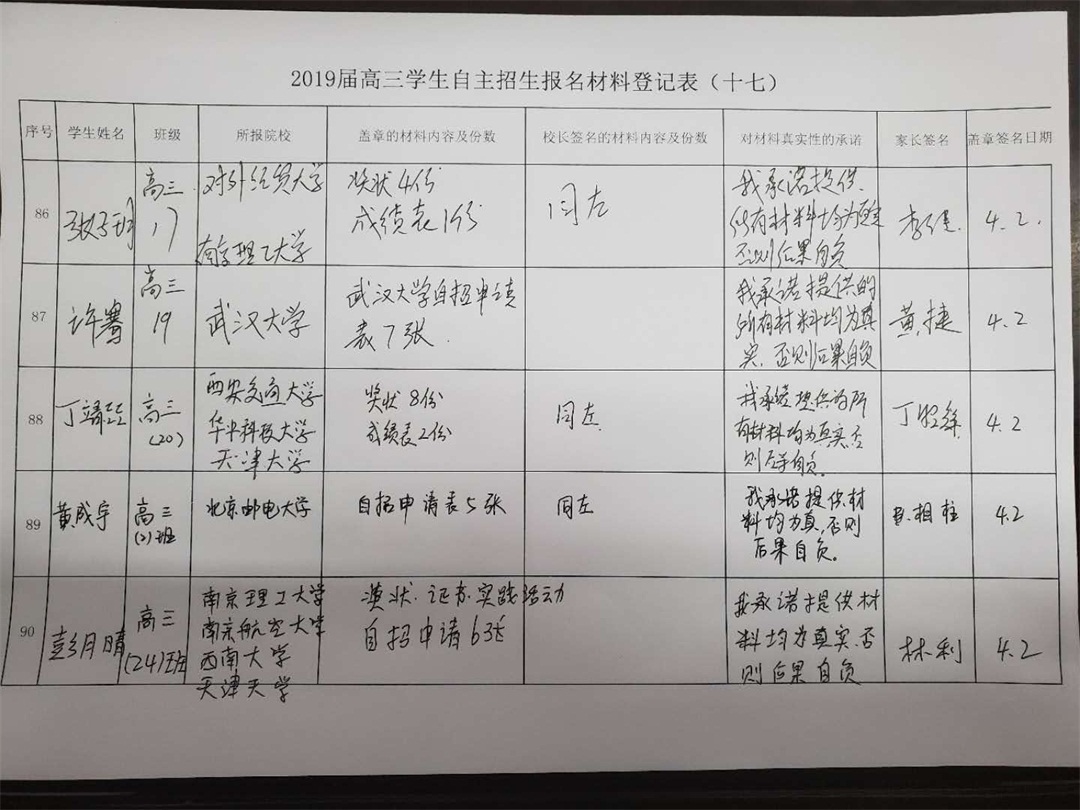 2019届高三学生自主招生报名材料登记表（十七）
序号 学生姓名 班级 所报院校 盖章的材料内容及份数 校长签名的材料内容及份数 对材料真实性的承诺 家长签名 盖章签名日期
86
高三
17
对外经贸大学
南京理工大学
奖状4份
成绩表1份
同左
我承诺提供
所有材料均为真实
否则后果自负
4.2.
87
许骞
高三
19
武汉大学
武汉大学自招申请
表7张.
我承诺提供的
所有材料均为真
实,否则后果自负
黄捷
4.2
88
高三
(20)
西安交通大学
华中科技大学
天津大学
奖状8份
成绩表2份
同左.
我承诺提供的所
有材料均为真实,否
则后果自负.
4.2
89
黄成宇
高三
(2)班
北京邮电大学
自招申请表5张
同左
我承诺提供材
料均为真,否则
后果自负.
4.2
90
彭月晴
高三
(24)班
南京理工大学
南京航空大学
西南大学
天津大学
奖状.证书.实践活动
自招申请6张
我承诺提供材
料均为真实.否
则后果自负
林利
4.2